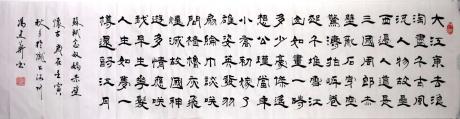 大江東去浪
淘盡千古風
流人物故壘
西邊人道是
三國周郎赤
壁亂石穿空
驚濤拍岸捲
起千堆雪江
山如畫一時
多少豪傑遙
想公瑾當年
小喬初嫁了
雄姿英發羽
扇綸巾談笑
間檣櫓灰飛
煙滅故國神
遊多情應笑
我早生華髮
人生如夢一
樽還酹江月
蘇軾念奴嬌赤壁
懷古歲在壬寅